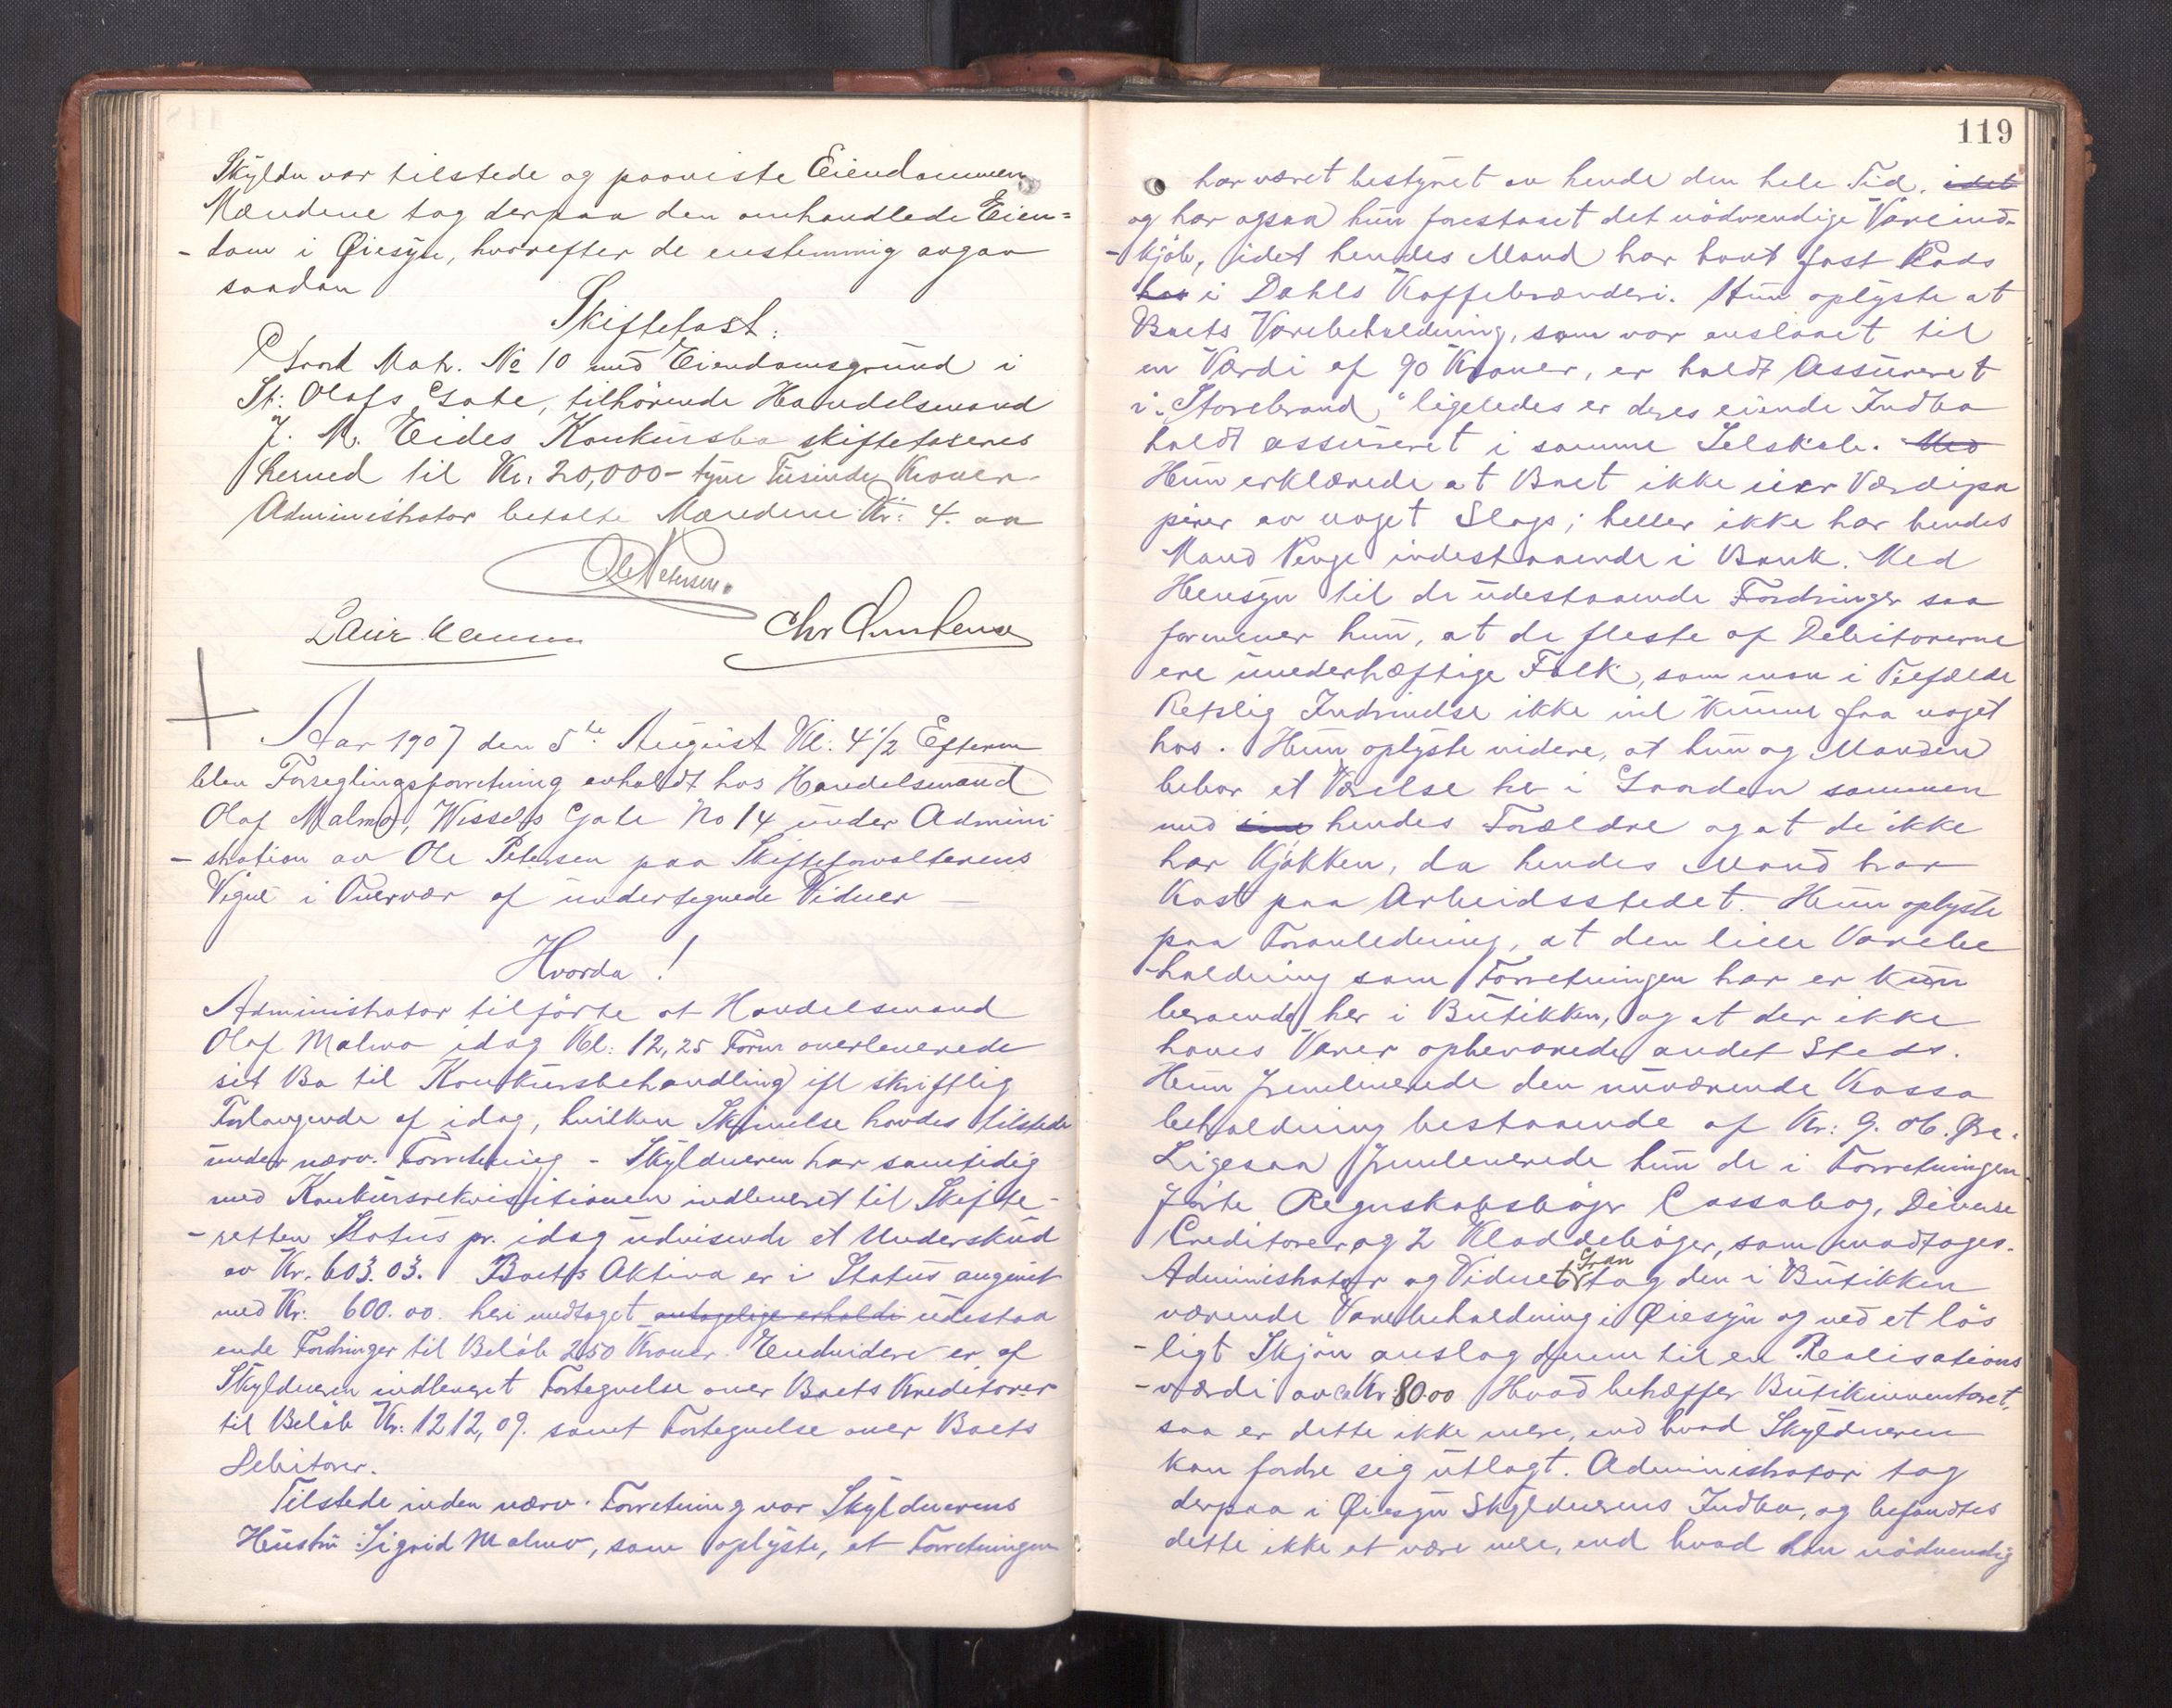 Skyldn var tilstede og paaviste Eiendommen
Mændene tog derpaa den omhandlede Eien=
-dom i Øiesyn, hvorefter de enstemmig avgav
saadan
Skiftetaxt:
Gaard Matr. No 10 med Eiendomsgrund i
St: Olafs Gate, tilhørende Handelsmand
J. M. Eides Konkursbo skiftetaxeres
herved til Kr. 20,000 - tyve Tusinde Kroner.
Administrator betalte Mændene Kr: 4. oo
Ole Petersen.
Laur. Hansen Chr
Aar 1907 den 5te August Kl: 4 1/2 Efterm
blev Forseglingsforretning avholdt hos Handelsmand
Olaf Malmo, Wissels Gate No 14 under Admini
-stration av Ole Petersen paa Skifteforvalterens
Vegne i Overvær af undertegnede Vidner —
Hvorda!
Administrator tilførte at Handelsmand
Olaf Malmo idag Kl: 12,25 Form overleverede
sit Bo til Konkursbehandling ifl skriftlig
Forlangende af idag, hvilken Skrivelse havdes tilstede
under nærv. Forretning - Skyldneren har samtidig
med Konkursrekvisitionen indleveret til Skifte-
-retten Status pr. idag udvisende et Underskud
av Kr. 603.03. Boets Aktiva er i Status angivet
med Kr: 600.00. heri medtaget antagelige erholdt udestaa
ende Fordringer til Beløb 250 Kroner. Endvidere er af
Skyldneren indleveret Fortegnelse over Boets Kreditorer
til Beløb Kr: 1212,09. samt Fortegnelse over Boets
Debitorer.
Tilstede under nærv. Forretning var Skyldnerens
Hustru Sigrid Malmo, som oplyste, at Forretningen
119
har været bestyret av hende den hele Tid, idet
og har ogsaa hun forestaaet det nödvendige Vareind-
-kjøb, idet hendes Mand har havt fast Plads
hos i Dahls Kaffebrænderi. Hun oplyste at
Boets Varebeholdning, som var anslaaet til
en Værdi af 90 Kroner, er holdt Assureret
i "Storebrand," ligeledes er deres eiende Indbo
holdt assureret i samme Selskab. Med
Hun erklærede at Boet ikke eier Værdipa
pirer av noget Slags; heller ikke har hendes
Mand Penge indestaaende i Bank. Med
Hensyn til de udestaaende Fordringer saa
formener hun, at de fleste af Debitorerne
ere uvederhæftige Folk, som man i Tilfælde
Retslig Inddrivelse ikke vil kunne faa noget
hos. Hun oplyste videre, at hun og Manden
bebor et Værelse her i Gaarden sammen
med sine hendes Forældre og at de ikke
har Kjøkken, da hendes Mand har
Kost paa Arbeidsstedet. Hun oplyste
paa Foranledning, at den lille Varebe
-holdning som Forretningen har er kun
beroende her i Butikken, og at der ikke
haves Varer opbevarede andet Steds.
Hun fremleverede den nuværende Kassa
beholdning bestaaende af Kr: 9. 06. Øre.
Ligesaa fremleverede hun de i Forretningen
førte Regnskabsbøger Cassabog, Diverse
Creditorer og 2 Kladdebøger, som modtages.
Administrator og Vidnet Gran tog den i Butikken
værende Varebeholdning i Øiesyn og ved et løs
-ligt Skjøn anslog denne til en Realisations
-værdi av ca Kr. 80.00 Hvad betræffer Butikinventaret,
saa er dette ikke mere, end hvad Skyldneren
kan fordre sig utlagt. Administrator tog
derpaa i Øiesyn Skyldnerens Indbo, og befandtes
dette ikke at være mere, end hvad han nödvendig